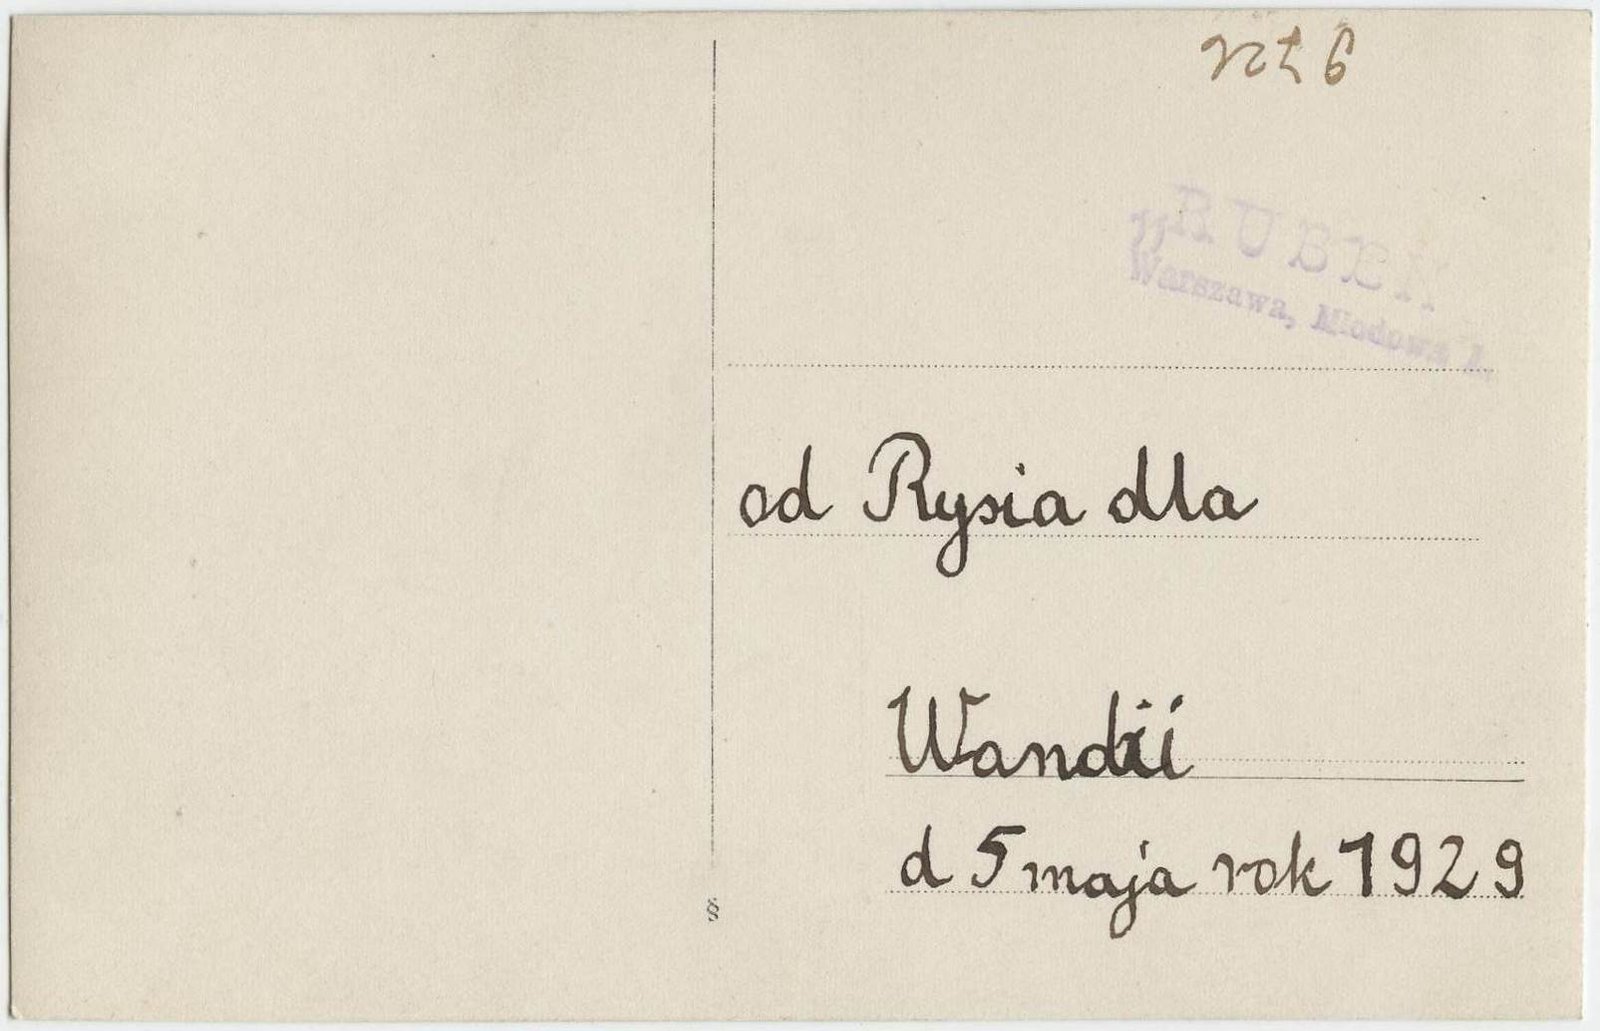 „RUBENS"
Warszawa, Miodowa 1.
od Rysia dla
Wandzi
d 5 maja rok 1929
§